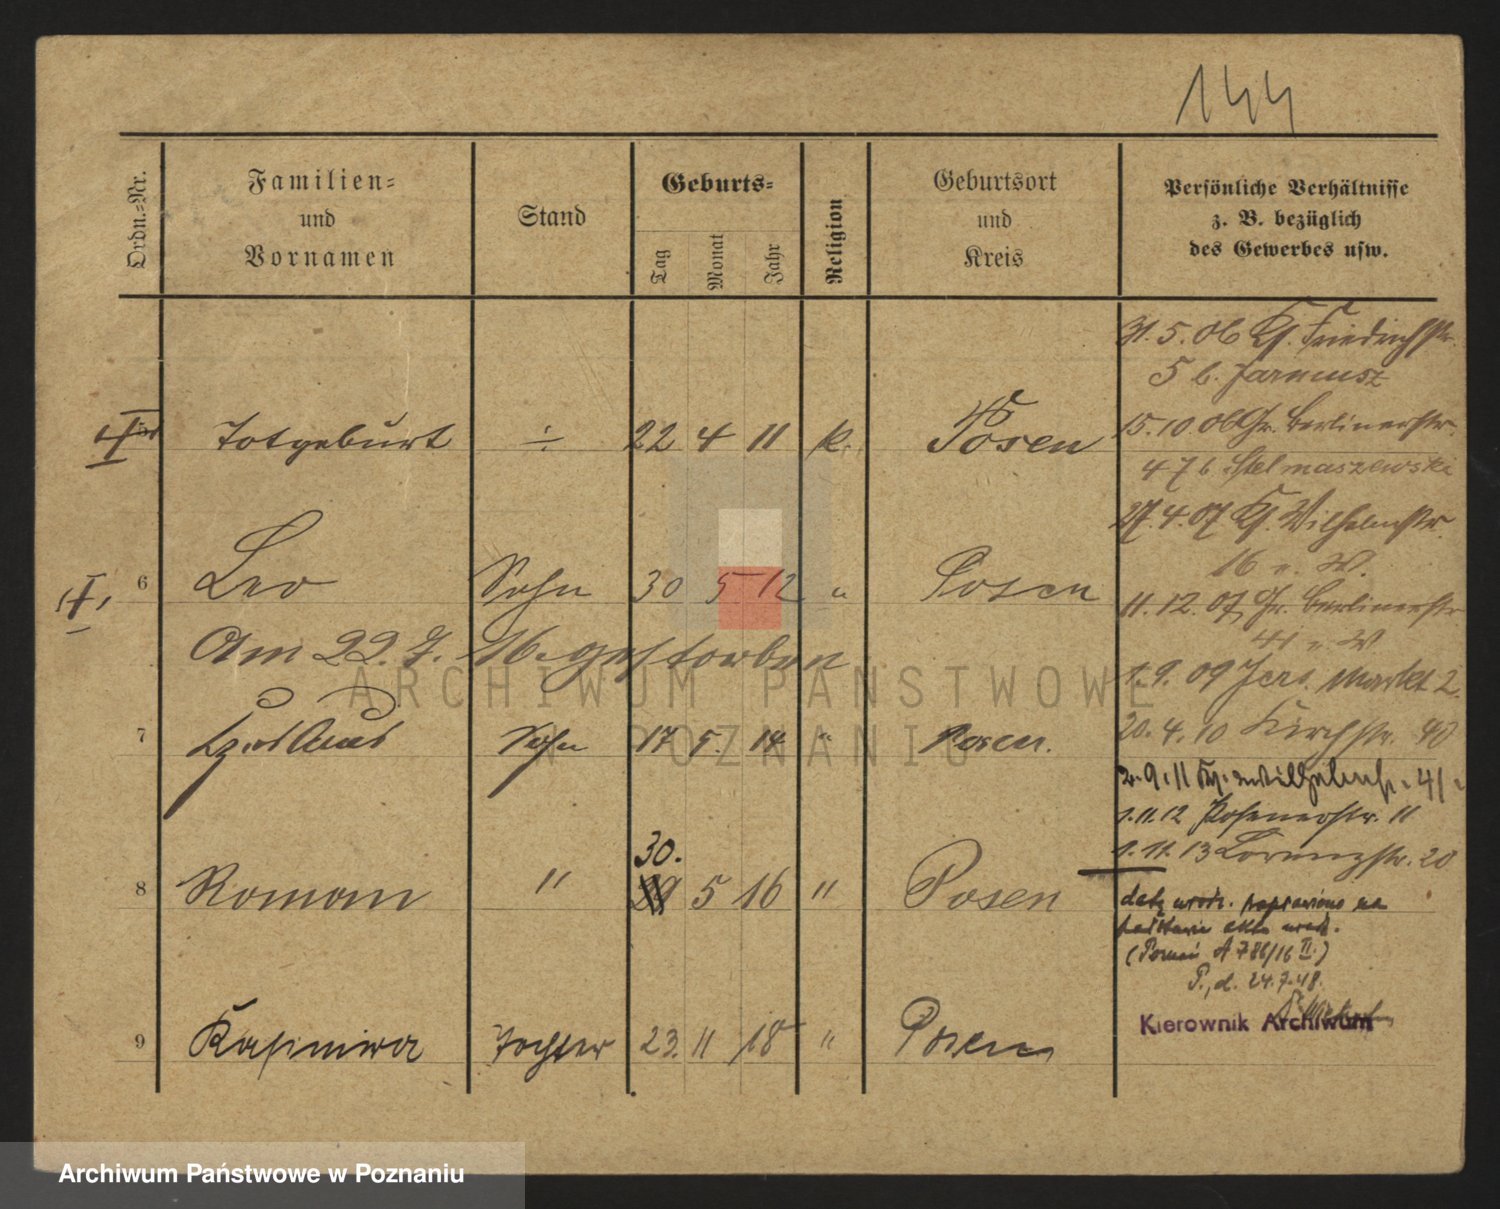 144
Ordn.-Nr.
Familien-
und
Vornamen
Stand
Geburts-
Tag
Monat
Jahr
Religion
Geburtsort
und
Kreis
Persönliche Verhältnisse
z. B. bezüglich
des Gewerbes usw.
31.5.06 Kl. Friedrichstr.
5 b. Jarnusz
5 Totgeburt ÷ 22 4 11 k. Posen
15.10.06 Gr. Berlinerstr.
47 b. Stelmaszewski
27.4.07 Kl. Wilhelmstr.
16 v. W.
6 Leo Sohn 30 5 12 " Posen
11.12.07 Gr. Berlinerstr.
41 v. W
Am 22. 7. 16. gestorben
1.9.09 Jers. Markt 2.
20.4.10 Kirchstr. 40
7 Sohn 17 5. 14 " Posen.
2.9.11 41
1.11.12 Posenerstr. 11
1.11.13 Lorenzstr. 20
30.
8 Roman " 29 5 16 " Posen
datę urodz. poprawiono na
podstawie aktu urodz.
(Poznań A 786/16 II)
P., d. 24.7.48.
Kierownik Archiwum
9 Kasimira Tochter 23. 11 18 " Posen
ARCHIWUM PAŃSTWOWE
W POZNANIU
Archiwum Państwowe w Poznaniu